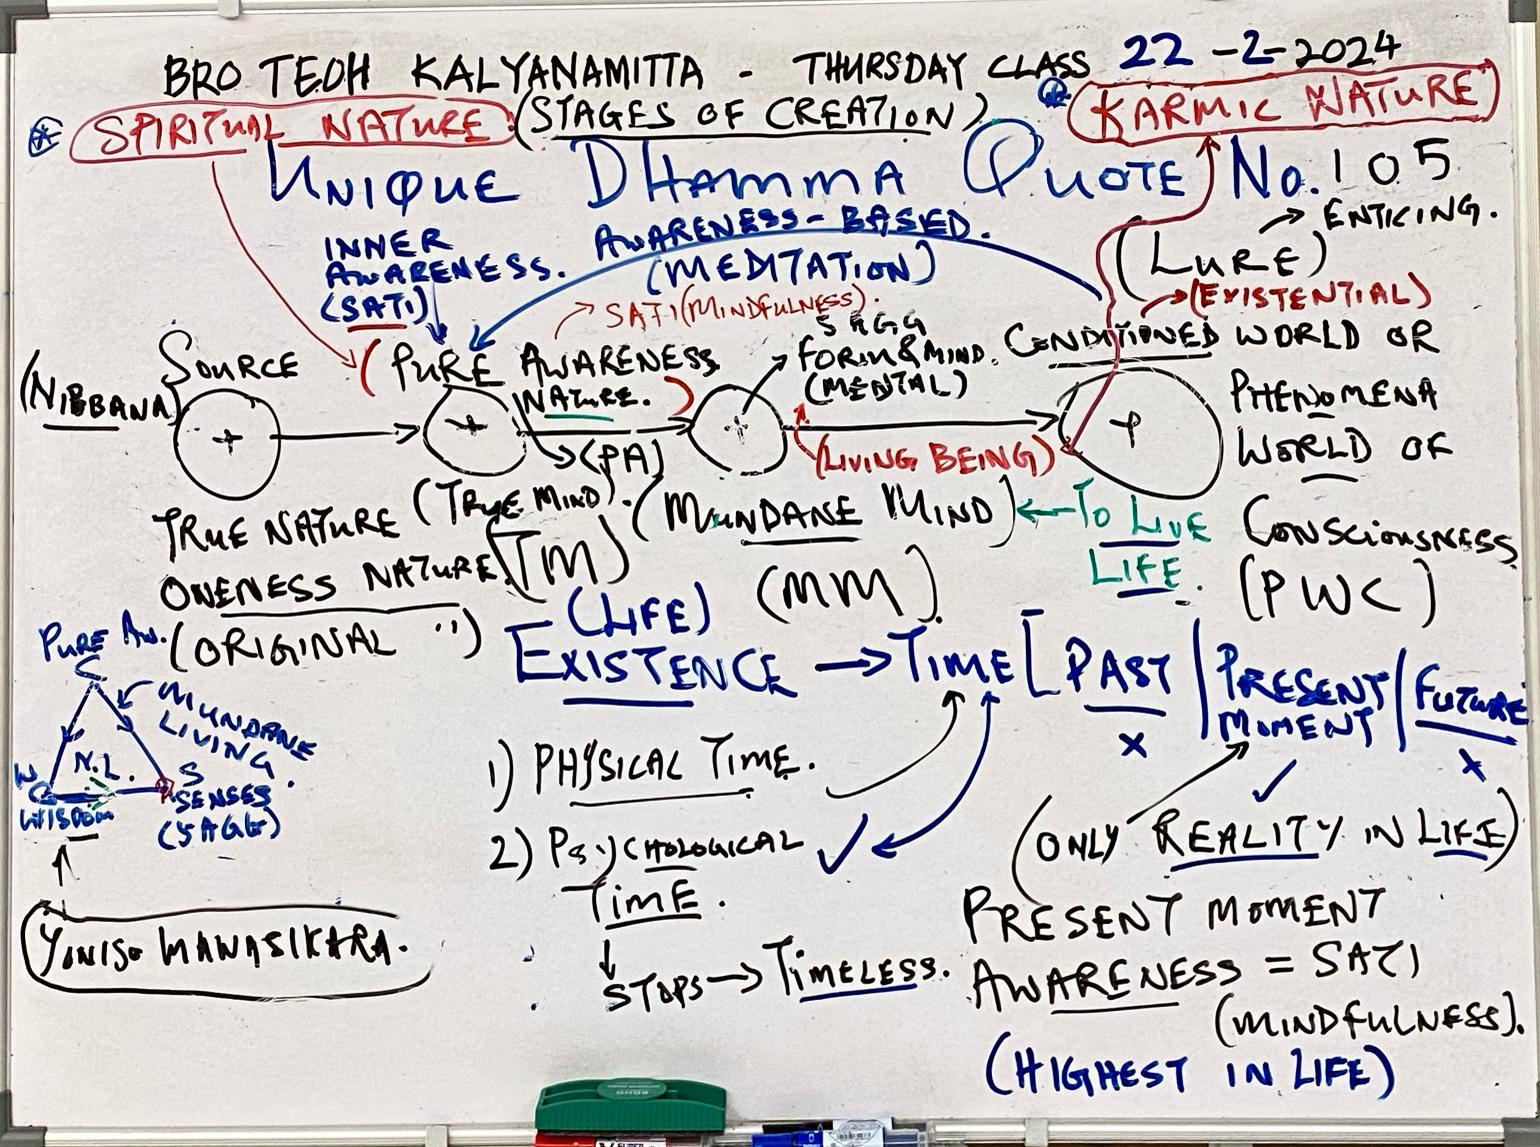 BRO TEOH KALYANAMITTA - THURSDAY CLASS 22-2-2024
SPIRITUAL NATURE: (STAGES OF CREATION) KARMIC NATURE
UNIQUE DHAMMA QUOTE No. 105
INNER AWARENESS. (SATI)
AWARENESS-BASED. (MEDITATION)
(LURE) → ENTICING.
→ (EXISTENTIAL)
→ SATI (MINDFULNESS).
(NIBBANA) SOURCE
(PURE AWARENESS NATURE.)
→ (PA)
5 AGG
FORM & MIND.
(MENTAL)
(LIVING BEING)
CONDITIONED WORLD OR
PHENOMENA
WORLD OF
CONSCIOUSNESS
(PWC)
TRUE NATURE
ONENESS NATURE.
(ORIGINAL ")
(TRUE MIND).
(TM)
(MUNDANE MIND)
(MM).
← TO LIVE
LIFE.
PURE AW.
C
MUNDANE
LIVING.
N.L.
W
WISDOM
S
SENSES
(5 AGG)
YONISO MANASIKARA.
(LIFE)
EXISTENCE → TIME [PAST | PRESENT MOMENT | FUTURE
x
x
1) PHYSICAL TIME.
2) PSYCHOLOGICAL
TIME.
↓
STOPS → TIMELESS.
(ONLY REALITY IN LIFE)
PRESENT MOMENT
AWARENESS = SATI
(MINDFULNESS).
(HIGHEST IN LIFE)